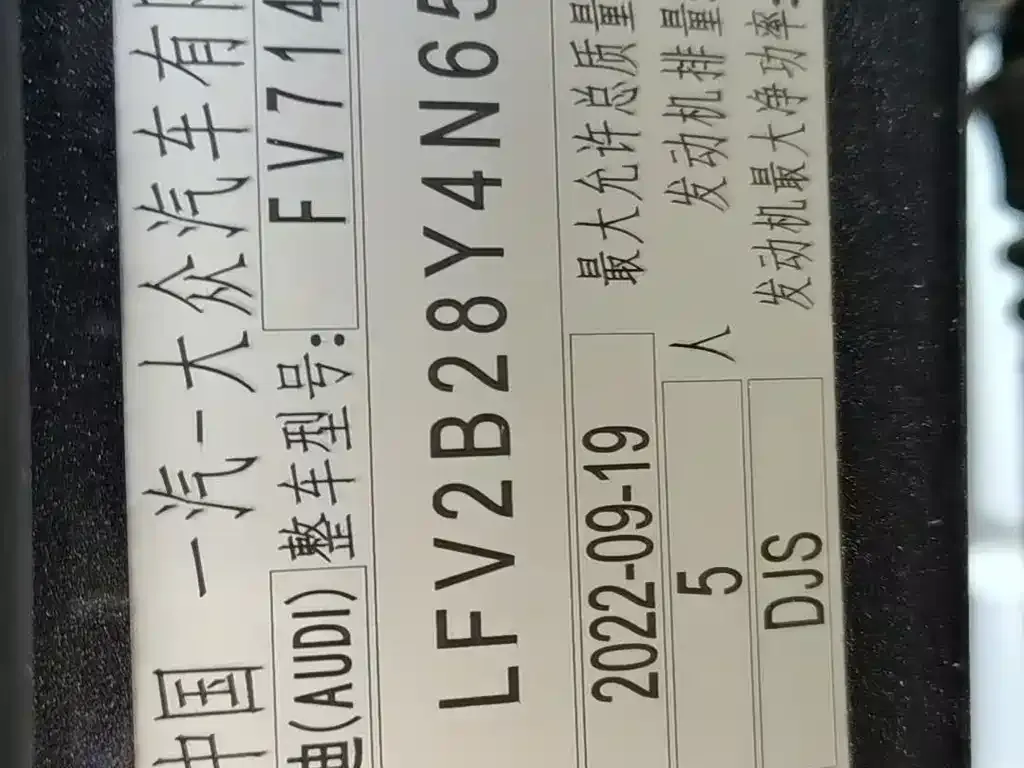 中国 一汽-大众汽车有
迪(AUDI) 整车型号: FV714
LFV2B28Y4N65
2022-09-19 最大允许总质量
5 人 发动机排量:
DJS 发动机最大净功率: